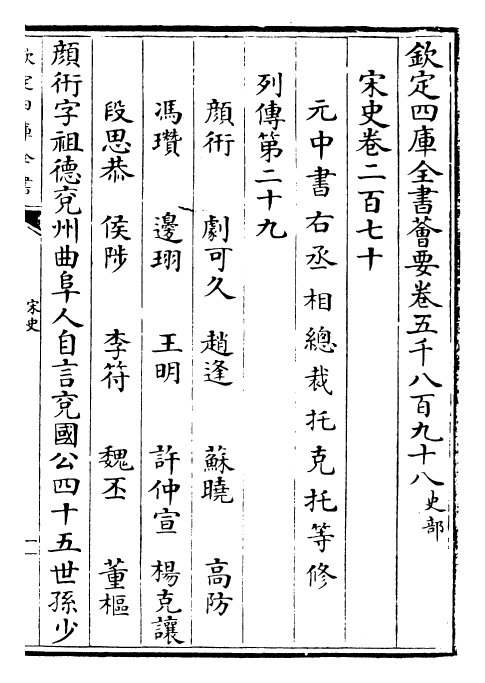 欽定四庫全書薈要卷五千八百九十八史部
宋史卷二百七十
元中書右丞相總裁托克托等修
列傳第二十九
顔衎　劇可久　趙逢　蘇曉　高防
馮瓚　邊珝　王明　許仲宣　楊克讓
段思恭　侯陟　李符　魏丕　董樞
顔衎字祖德兖州曲阜人自言兖國公四十五世孫少
欽定四庫全書
宋史
一